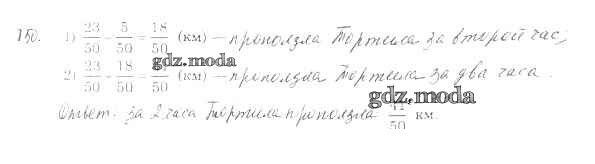 150. 1) 23/50 - 5/50 = 18/50 (км) – проползла Тортила за второй час;
gdz.moda
2) 23/50 - 18/50 = (км) – проползла Тортила за два часа.
gdz.moda
Ответ: за 2 часа Тортила проползла 41/50 км.